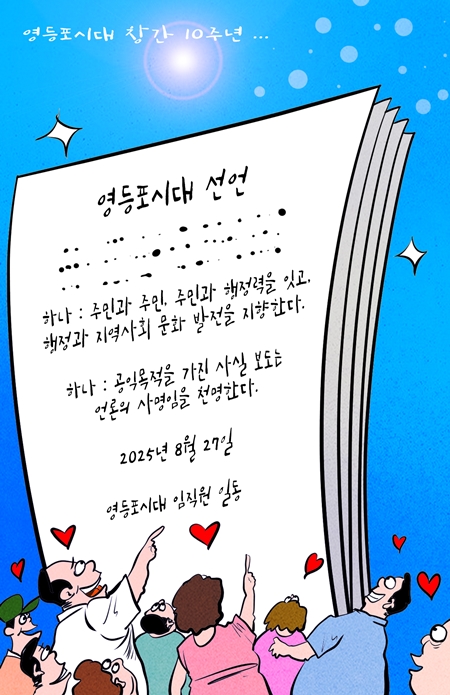 영등포시대 창간 10주년 ...
영등포시대 선언
하나 : 주민과 주민, 주민과 행정력을 잇고,
행정과 지역사회 문화 발전을 지향한다.
하나 : 공익목적을 가진 사실 보도는
언론의 사명임을 천명한다.
2025년 8월 27일
영등포시대 임직원 일동